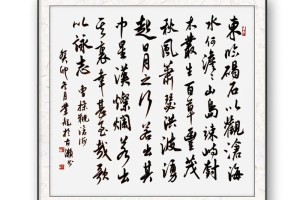 東臨碣石以觀滄海
水何澹澹山島竦峙樹
木叢生百草豐茂
秋風蕭瑟洪波湧
起日月之行若出其
中星漢燦爛若出
其裏幸甚至哉歌
以詠志 曹操觀滄海
癸卯冬月